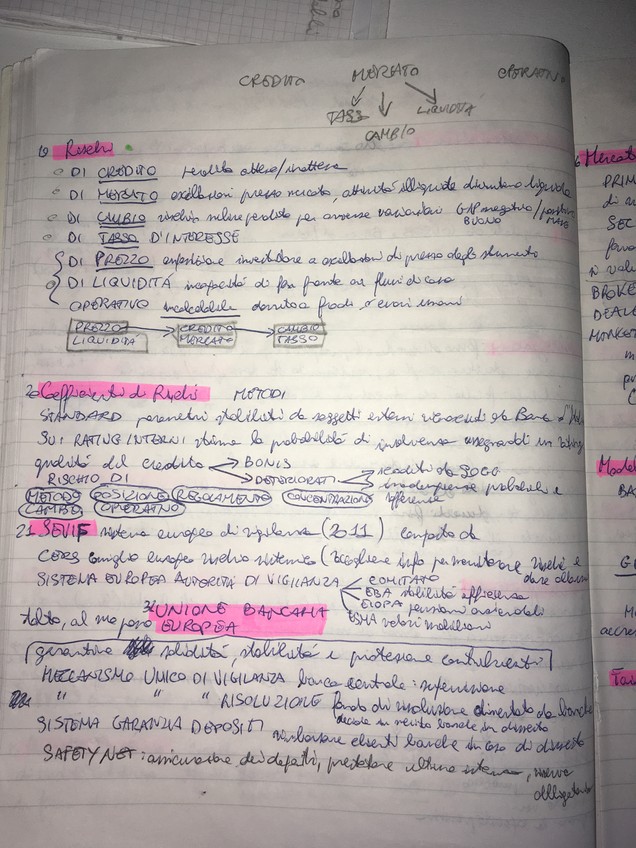 CREDITO MERCATO OPERATIVO
TASSO LIQUIDITÀ
CAMBIO
Rischi
DI CREDITO perdita attesa/inattesa
DI MERCATO oscillazioni prezzo mercato, attività illiquide
DI CAMBIO rischio subire perdite per avverse variazioni GAP negativo/positivo
BUONO MALE
DI TASSO D'INTERESSE
DI PREZZO esposizione investitore a oscillazioni di prezzo degli strumenti
DI LIQUIDITÀ incapacità di far fronte ai flussi di cassa
OPERATIVO incalcolabile dovuto a frodi o errori umani
PREZZO CREDITO CAMBIO
LIQUIDITÀ MERCATO TASSO
20 Coefficienti di Rischi METODI
STANDARD parametri stabiliti da soggetti esterni riconosciuti da Banca d'Italia
SUI RATING INTERNI stima la probabilità di insolvenza assegnando un rating
qualità del credito BONIS
RISCHIO DI DETERIORATI scaduti da 90GG
inadempienze probabili e
METODO POSIZIONE REGOLAMENTO CONCENTRAZIONE sofferenze
CAMBIO OPERATIVO
21 SEVIF sistema europeo di vigilanza (2011) composto da
CERS consiglio europeo rischio sistemico (raccogliere info per monitorare rischi e
dare allarmi
SISTEMA EUROPEA AUTORITÀ DI VIGILANZA COMITATO
EBA stabilità efficienza
EIOPA pensioni aziendali
ESMA valori mobiliari
UNIONE BANCARIA
EUROPEA
garantire solidità, stabilità e protezione contribuenti
MECCANISMO UNICO DI VIGILANZA banca centrale: supervisione
" " " RISOLUZIONE fondo di risoluzione alimentato da banche
decide in merito banche in dissesto
SISTEMA GARANZIA DEPOSITI rimborsare clienti banche in caso di dissesto
SAFETY NET: assicurazione dei depositi, prestatore ultima istanza, riserve
obbligatorie
Mercato
PRIM
di v
SEC
BROKE
DEALE
MARKET
Model
BA
G
accre
Tas